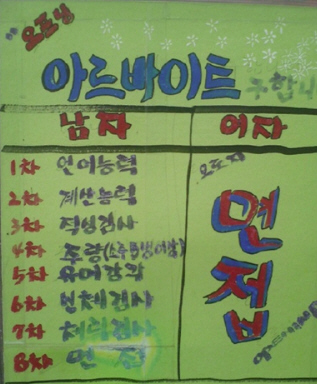 오픈닝
아르바이트 구합니
남자
여자
1차 언어능력
2차 계산능력
3차 적성검사
4차 주량(소주 3병이상)
5차 유머감각
6차 신체검사
7차 체력검사
8차 면접
오로지
면접